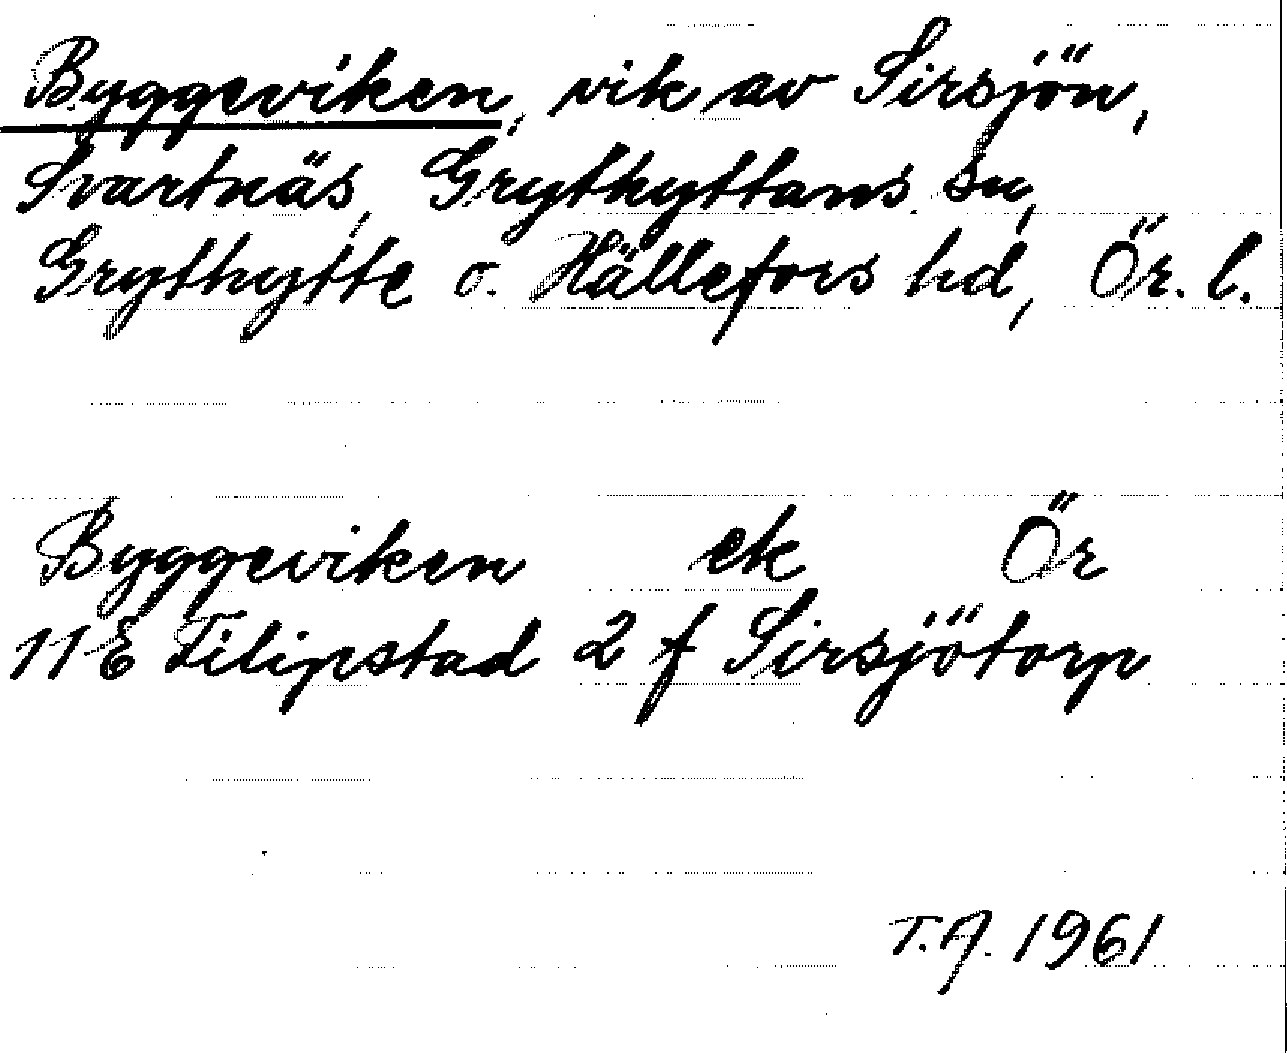 Byggeviken, vik av Sirsjön,
Svartnäs, Grythyttans sn,
Grythytte o. Hällefors hd, Ör. l.
Byggeviken ek Ör
11E Filipstad 2 f Sirsjötorp
T.A. 1961